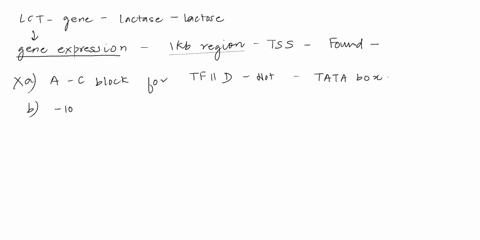 LCT - gene - lactase - lactose
↓
gene expression - 1kb region - TSS - Found -
Xa) A - C block for TFIID - Not - TATA box.
b) -10